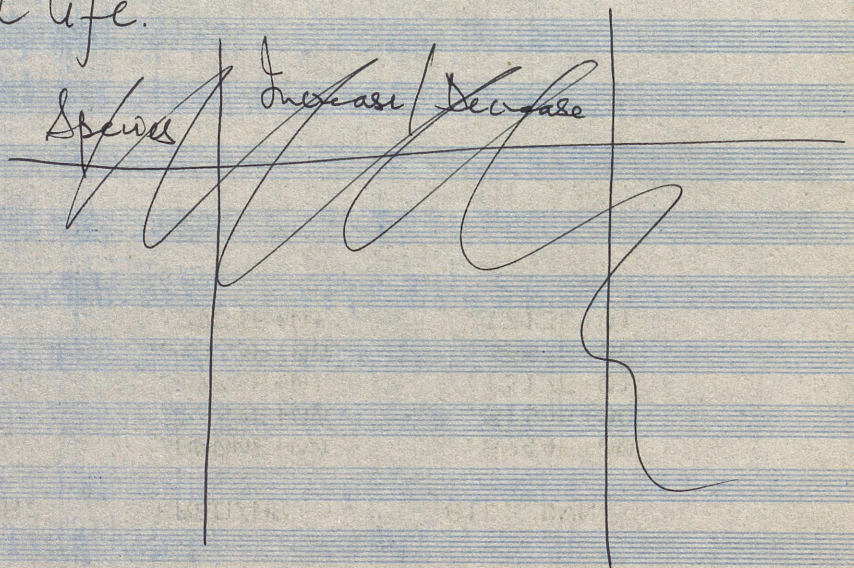 life.
Species Increase/Decrease